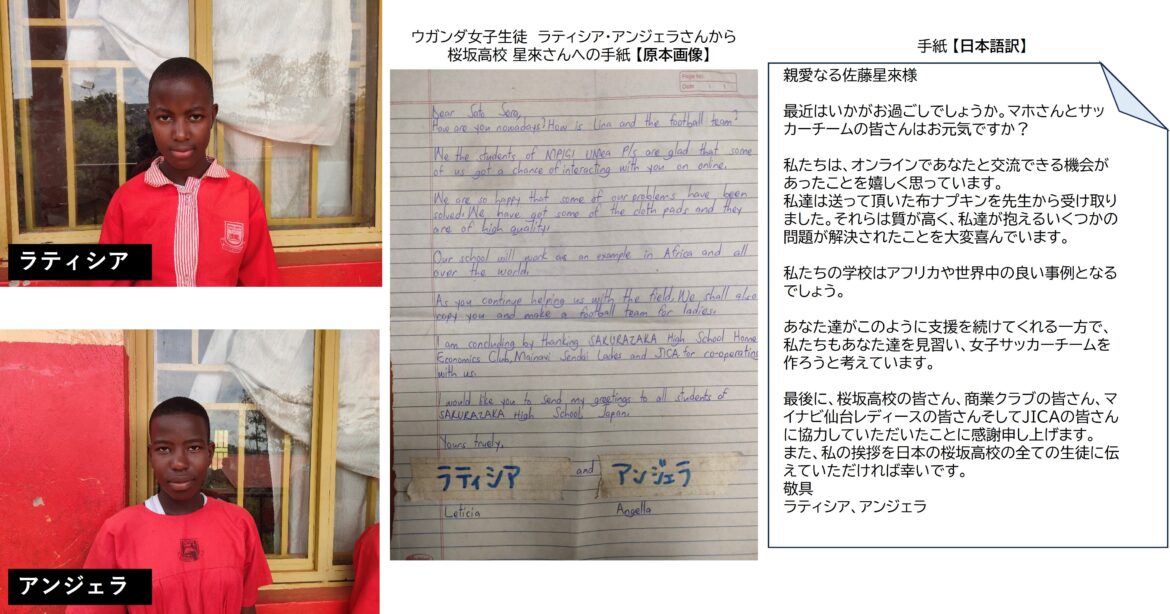 ラティシア
アンジェラ
ウガンダ女子生徒 ラティシア・アンジェラさんから
桜坂高校 星來さんへの手紙【原本画像】
Page No.
Date
Dear Sato Sera,
How are you nowadays? How is Lina and the football team?
We the students of MPIGI UMEA P/s are glad that some
of us got a chance of interacting with you on online.
We are so happy that some of our problems have been
solved. We have got some of the cloth pads and they
are of high quality.
Our school will work as an example in Africa and all
over the world.
As you continue helping us with the field, We shall also
copy you and make a football team for ladies.
I am concluding by thanking SAKURAZAKA High School Home
Economics Club, Mainavi Sendai Ladies and JICA for co-operating
with us.
I would like you to send my greetings to all students of
SAKURAZAKA High School, Japan.
Yours truely,
ラティシア and アンジェラ
Leticia Angella
手紙【日本語訳】
親愛なる佐藤星來様
最近はいかがお過ごしでしょうか。マホさんとサッ
カーチームの皆さんはお元気ですか？
私たちは、オンラインであなたと交流できる機会が
あったことを嬉しく思っています。
私達は送って頂いた布ナプキンを先生から受け取り
ました。それらは質が高く、私達が抱えるいくつかの
問題が解決されたことを大変喜んでいます。
私たちの学校はアフリカや世界中の良い事例となる
でしょう。
あなた達がこのように支援を続けてくれる一方で、
私たちもあなた達を見習い、女子サッカーチームを
作ろうと考えています。
最後に、桜坂高校の皆さん、商業クラブの皆さん、マ
イナビ仙台レディースの皆さんそしてJICAの皆さん
に協力していただいたことに感謝申し上げます。
また、私の挨拶を日本の桜坂高校の全ての生徒に伝
えていただければ幸いです。
敬具
ラティシア、アンジェラ